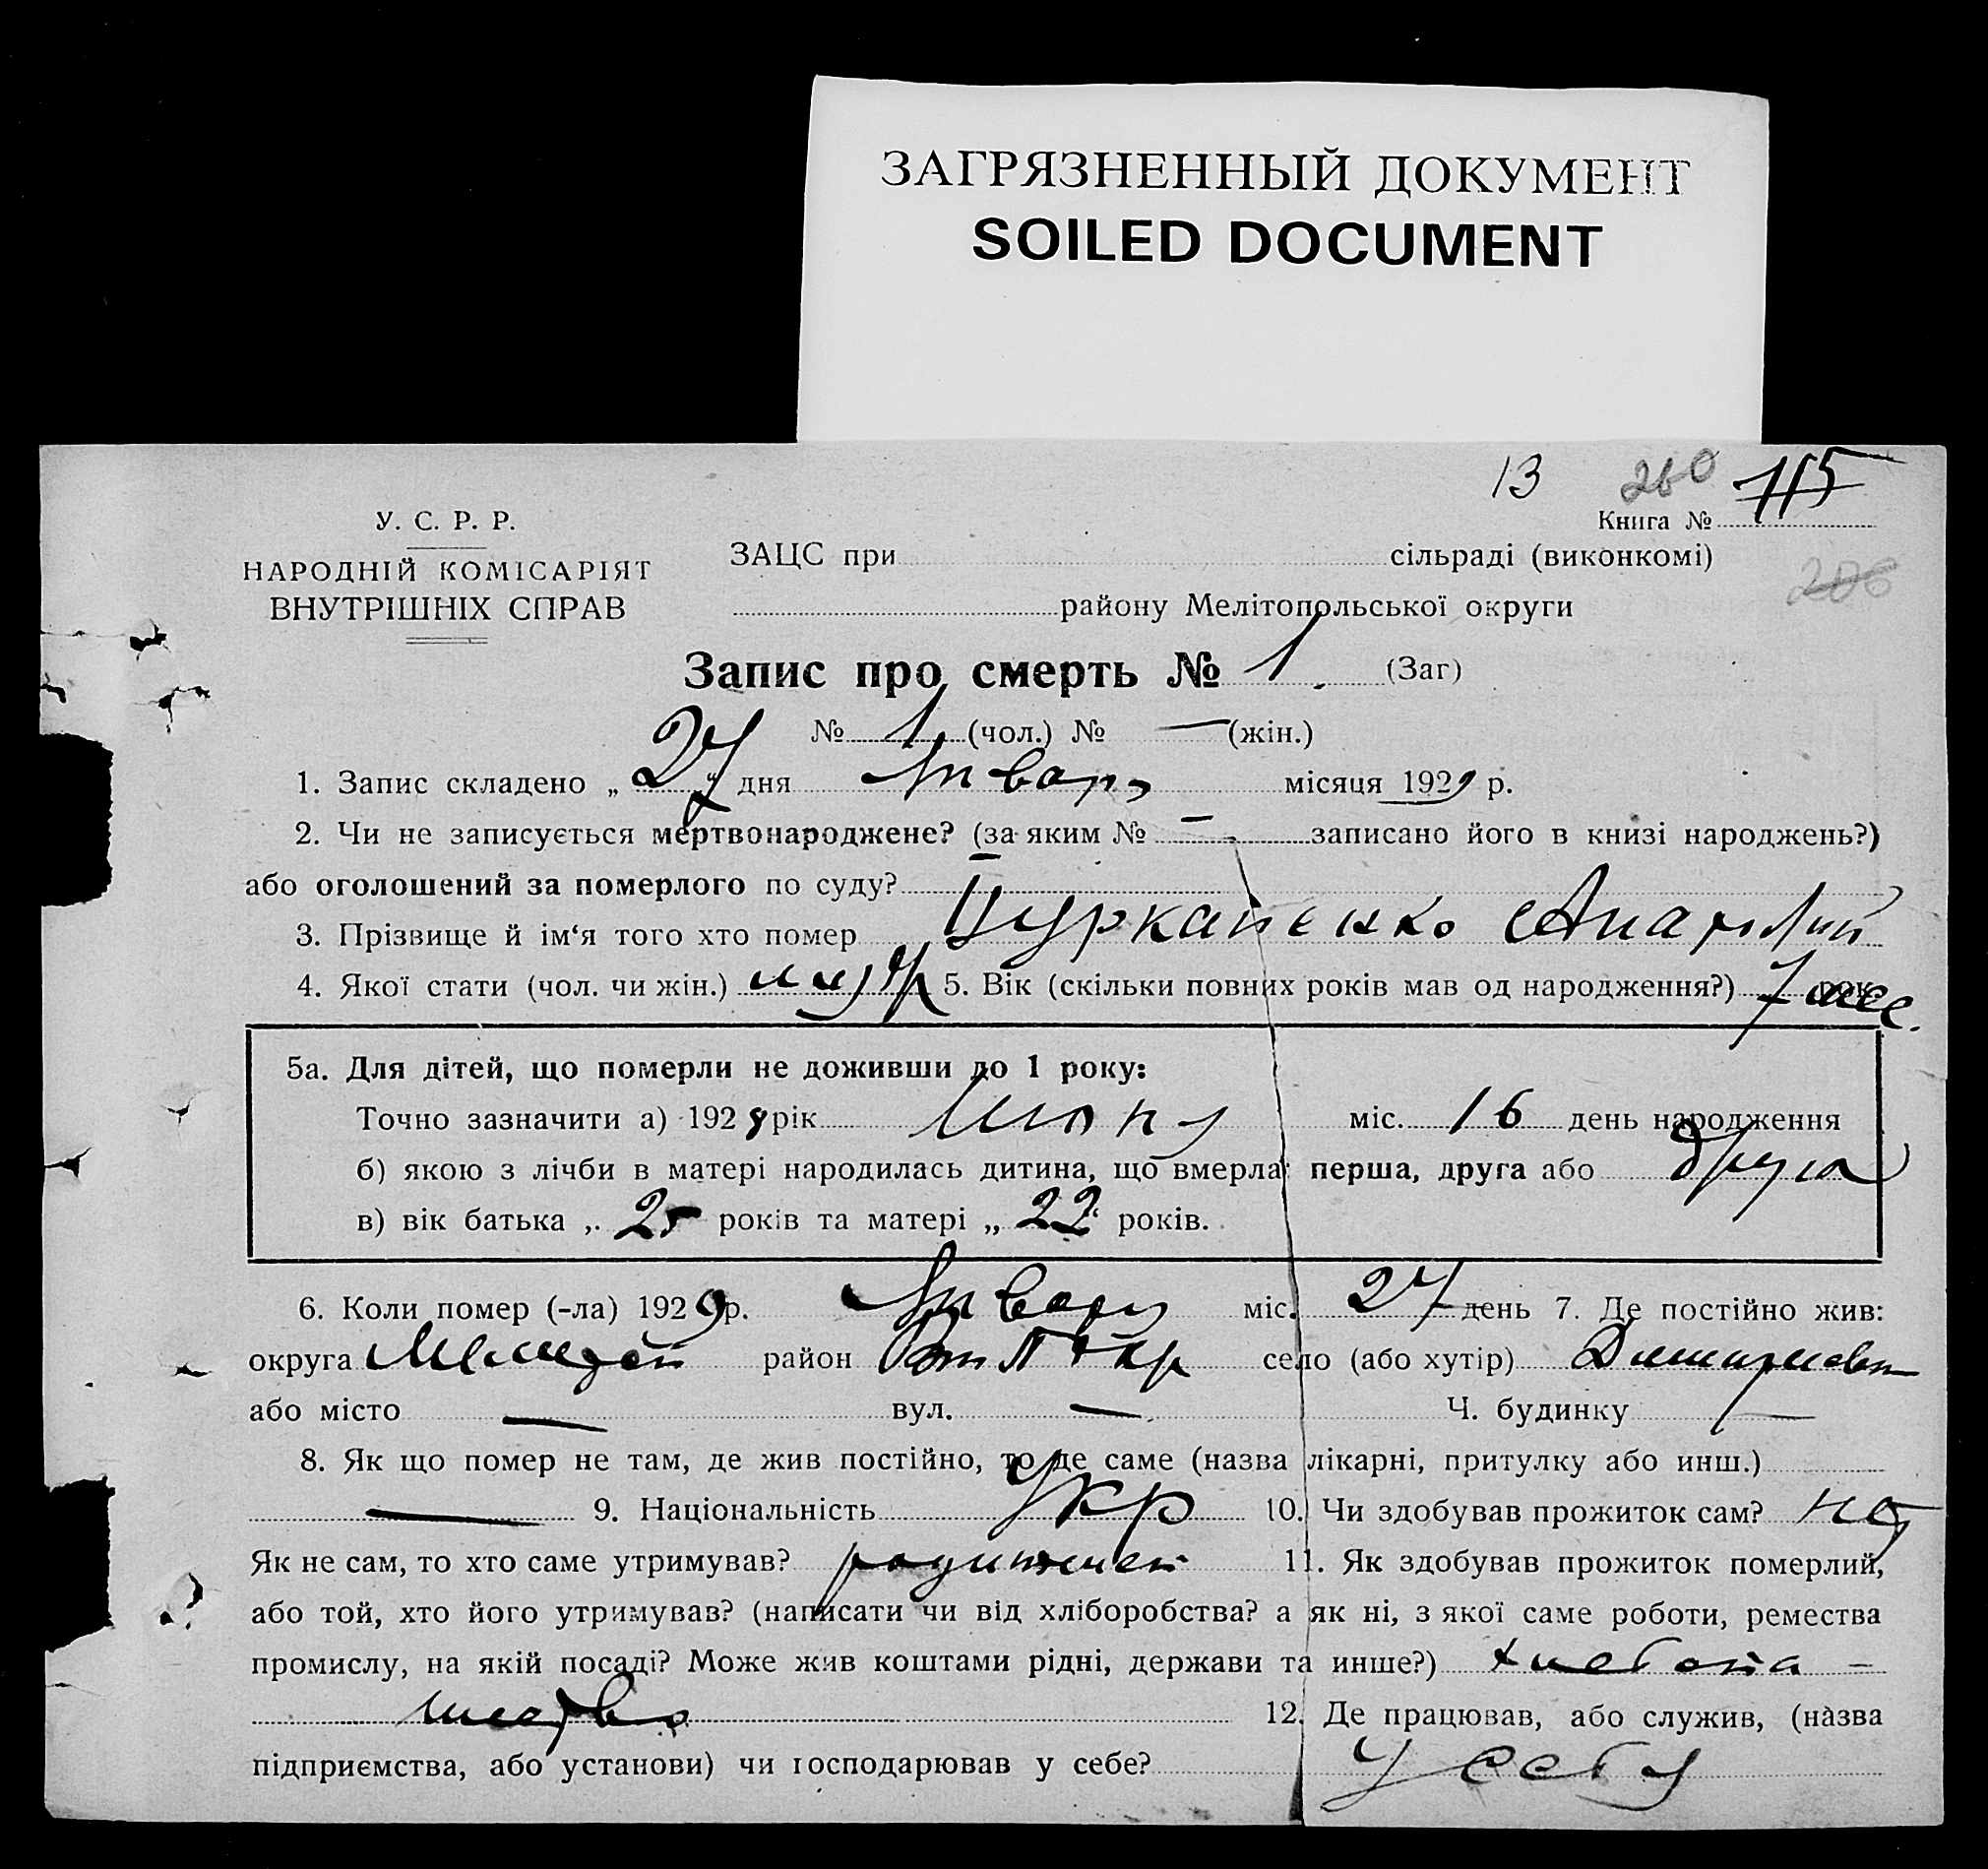 ЗАГРЯЗНЕННЫЙ ДОКУМЕНТ
SOILED DOCUMENT
13 260 115
Книга №
206
У. С. Р. Р.
НАРОДНІЙ КОМІСАРІЯТ
ВНУТРІШНІХ СПРАВ
ЗАЦС при сільраді (виконкомі)
району Мелітопольської округи
Запис про смерть № 1. (Заг)
№ 1 (чол.) № — (жін.)
1. Запис складено „ 27 “ дня Январ місяця 1929 р.
2. Чи не записується мертвонароджене? (за яким № — записано його в книзі народжень?)
або оголошений за померлого по суду? —
3. Прізвище й ім‘я того хто помер Цурканенко Анатолий
4. Якої стати (чол. чи жін.) муж 5. Вік (скільки повних років мав од народження?) 7 мес. рок.
5а. Для дітей, що померли не доживши до 1 року:
Точно зазначити а) 1928 рік Июня міс. 16 день народження
б) якою з лічби в матері народилась дитина, що вмерла: перша, друга або друга
в) вік батька „ 25 років та матері „ 22 “ років.
6. Коли помер (-ла) 1929 р. Январ міс. 27 день 7. Де постійно жив:
округа район село (або хутір)
або місто — вул. — Ч. будинку —
8. Як що помер не там, де жив постійно, то де саме (назва лікарні, притулку або инш.)
— 9. Національність Укр 10. Чи здобував прожиток сам? нет
Як не сам, то хто саме утримував? родители 11. Як здобував прожиток померлий,
або той, хто його утримував? (написати чи від хліборобства? а як ні, з якої саме роботи, ремества
промислу, на якій посаді? Може жив коштами рідні, держави та инше?) хлебопа-
шество 12. Де працював, або служив, (назва
підприємства, або установи) чи господарював у себе? у себя